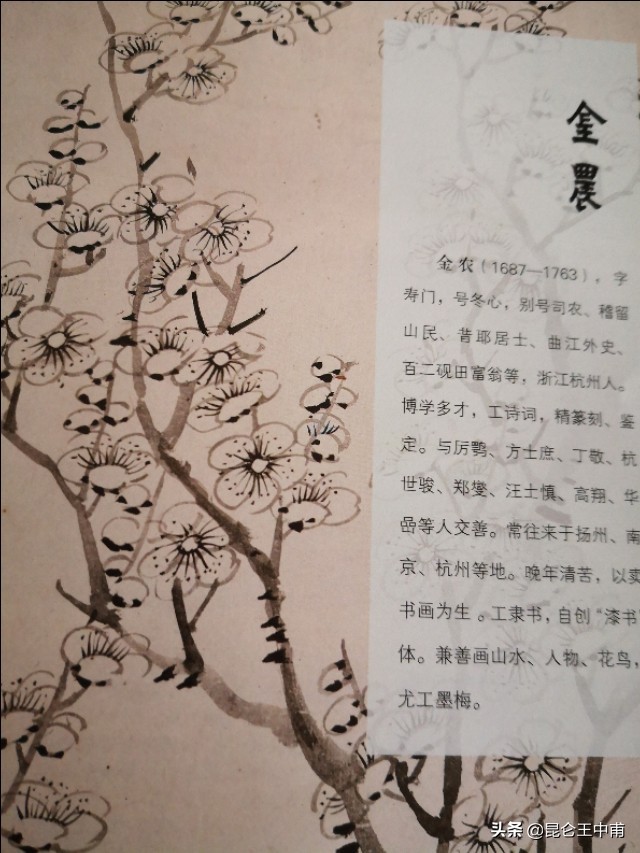 金農
金农（1687—1763），字
寿门，号冬心，别号司农、稽留
山民、昔耶居士、曲江外史、
百二砚田富翁等，浙江杭州人。
博学多才，工诗词，精篆刻、鉴
定。与厉鹗、方士庶、丁敬、杭
世骏、郑燮、汪士慎、高翔、华
嵒等人交善。常往来于扬州、南
京、杭州等地。晚年清苦，以卖
书画为生。工隶书，自创“漆书”
体。兼善画山水、人物、花鸟，
尤工墨梅。
头条 @昆仑王中甫